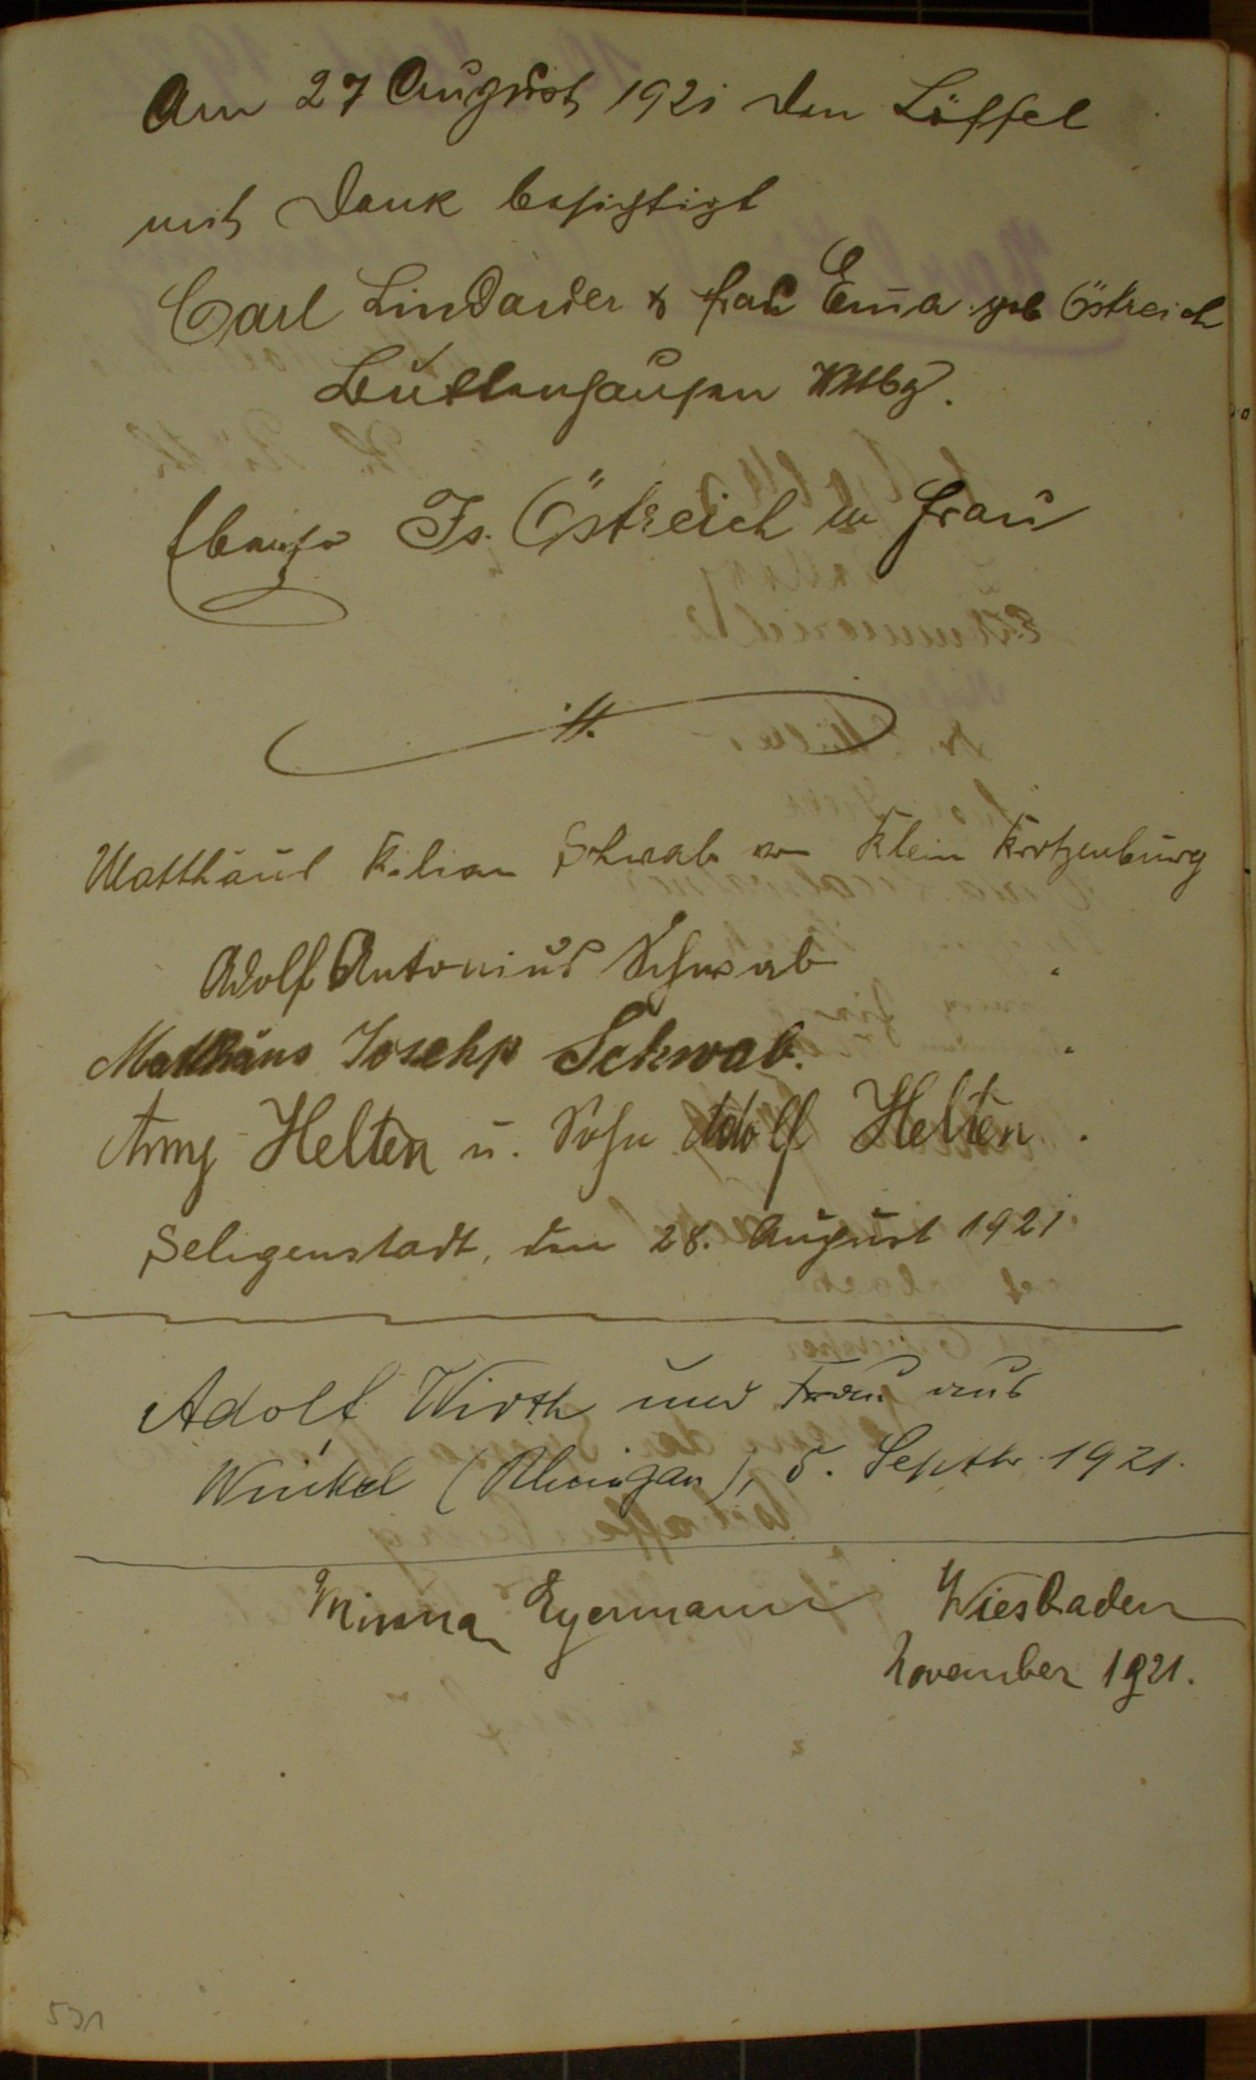 Am 27 August 1921 den Löffel
mit Dank besichtigt
Carl Lindauer & Frau Em̄a geb Östreich
Buttenhausen Wttbg.
Ebenso Is. Östreich u Frau
Matthäus Kilian Schwab von Klein Krotzenburg
Adolf Antonius Schwab "
Matthäus Josehp Schwab. "
Amy Helten u. Sohn Adolf Helten.
Seligenstadt, den 28. August 1921
Adolf Wirth und Frau aus
Winkel (Rheingau), 5. Septbr. 1921.
Minna Eyermann Wiesbaden
November 1921.
531